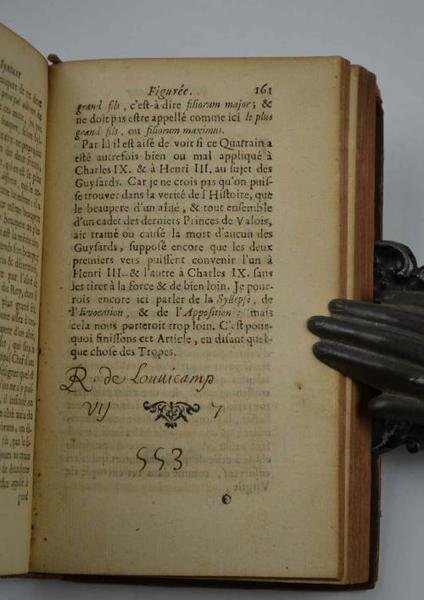 Figurée. 161
grand fils, c'est-à dire filiorum major; &
ne doit pas estre appellé comme ici le plus
grand fils, ou filiorum maximus.
Par là il est aisé de voir si ce Quatrain a
esté autrefois bien ou mal appliqué à
Charles IX. & à Henri III. au sujet des
Guysards. Car je ne crois pas qu'on puis-
se trouver dans la verité de l'Histoire, que
le beaupere d'un aîné, & tout ensemble
d'un cadet des derniers Princes de Valois,
ait tramé ou causé la mort d'aucun des
Guysards, supposé encore que les deux
premiers vers puissent convenir l'un à
Henri III. & l'autre à Charles IX. sans
les tirer à la force & de bien loin. Je pour-
rois encore ici parler de la Syllepse, de
l'Evocation, & de l'Apposition: mais
cela nous porteroit trop loin. C'est pour-
quoi finissons cet Article, en disant quel-
que chose des Tropes.
R. de Louuicamp
VIJ 7
553